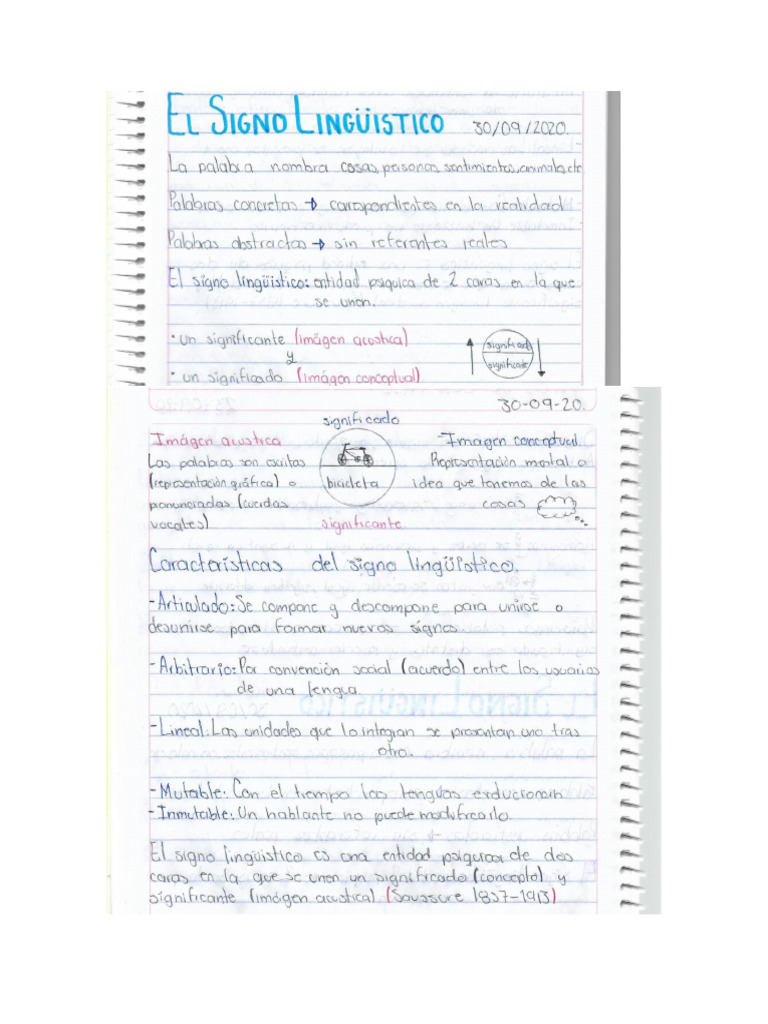 EL SIGNO LINGÜISTICO 30/09/2020.
La palabra nombra cosas, personas, sentimientos, animales, etc
Palabras concretas → correspondientes en la realidad
Palabras abstractas → sin referentes reales
El signo lingüistico: entidad psiquica de 2 caras en la que
se unen.
• un significante (imágen acustica)
y
• un significado (imágen conceptual)
significado
significante
30-09-20.
significado
Imágen acustica
Las palabras son escritas
(representación gráfica) o
pronunciadas (cuerdas
vocales)
bicicleta
significante
-Imagen conceptual
Representación mental o
idea que tenemos de las
cosas
Características del signo lingüístico.
-Articulado: Se compone y descompone para unirse o
desunirse para formar nuevos signos
-Arbitrario: Por convención social (acuerdo) entre los usuarios
de una lengua.
-Lineal: Las unidades que lo integran se presentan una tras
otra.
-Mutable: Con el tiempo las lenguas evolucionan
-Inmutable: Un hablante no puede modificarlo.
El signo lingüistico es una entidad psiquica de dos
caras en la que se unen un significado (concepto) y
significante (imágen acustica) (Saussure 1857-1913)